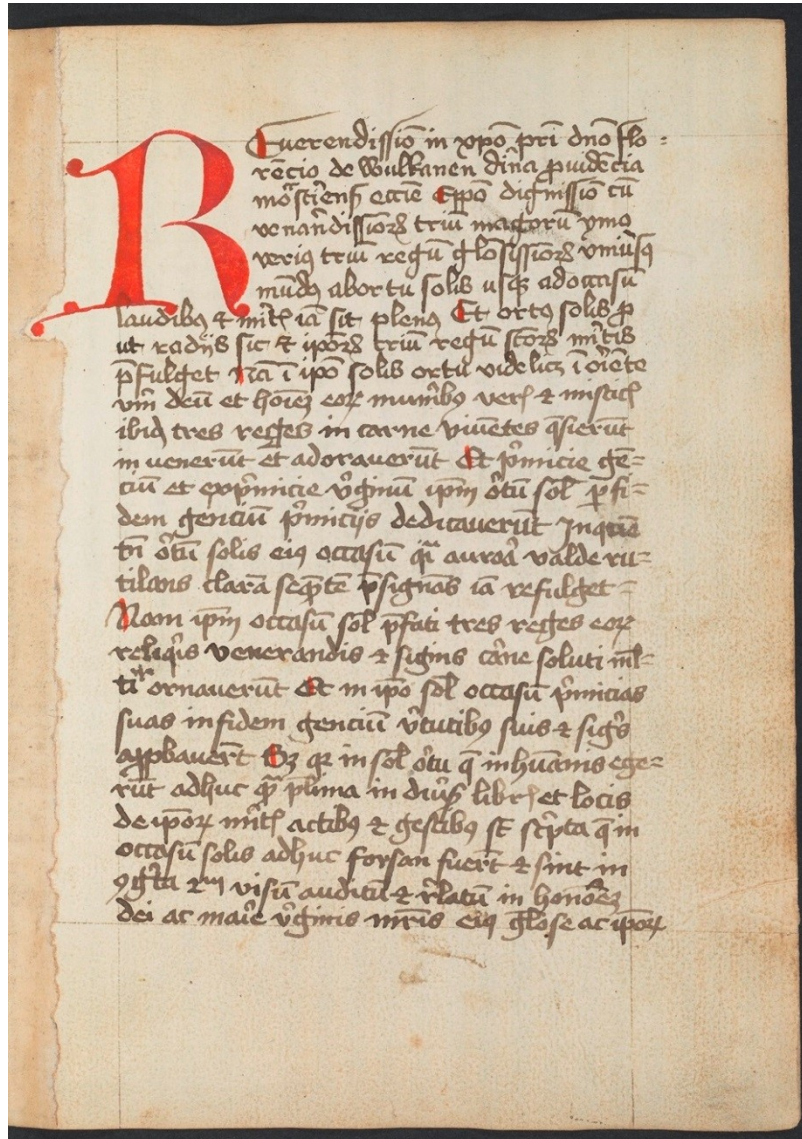 REuerendissiō in xpō pr̄i dn̄o flo-
rēcio de wulkanen diīna ꝓuidēcia
mōstīens̄ eccīe Ep̄o dignissiō cū
venān̄dissiorꝝ triū magorū ymo
veriꝰ triū regū gl̄osissiorꝝ vniūsꝰ
mūdꝰ abortu solis usqꝫ adoccasū
laudibꝰ & mītꝭ iā sit plenꝰ Et ortꝰ solis ꝓ
ut radijs sic & ip̄orꝝ triū regū sc̄orꝝ mītis
p̄fulget nā ī ip̄o solis ortu videlicꝫ ī oīēte
vn̄ deū et hoīeꝫ eoꝝ munībꝰ verꝭ & misticꝭ
ibiqꝫ tres reges in carne viuētes q̄sierūt
in venerūt et adorauerūt Et pīmicie gē-
ciū et expīmicie v̄ginū ip̄m ōtū sol̄ p̄ fi-
dem genciū pīmicijs dedicauerūt Inqͥ
tn̄ ōtū solis eiꝰ occasū qͣi auroā valde ru-
tilans clarā seqn̄tē p̄signās iā refulget-
Nam ip̄m occasū sol̄ p̄fati tres reges eoꝝ
reliqͥis venerandis & signis cāne soluti ml̄-
tīꝉ ornauerūt Et in ip̄o sol̄ occasū pīmicias
suas infidem genciū v̄tutibꝰ suis & sigīs
aꝓpbauer̄t Sꝫ qꝛ in sol̄ ōtu q̄ inhūanis ege-
rūt adhuc qͣ pl̄ima in diūs̄ librꝭ et locis
de ip̄oꝝ mītꝭ actibꝰ & gestibꝰ sūt sc̄pta q̄ in
occasū solis adhuc forsan fuer̄t & sint in
ꝯgīta visū auditū & rl̄atū in honōeꝫ
dei ac maīe v̄ginis mr̄is eiꝰ gl̄ose ac ip̄oꝝ